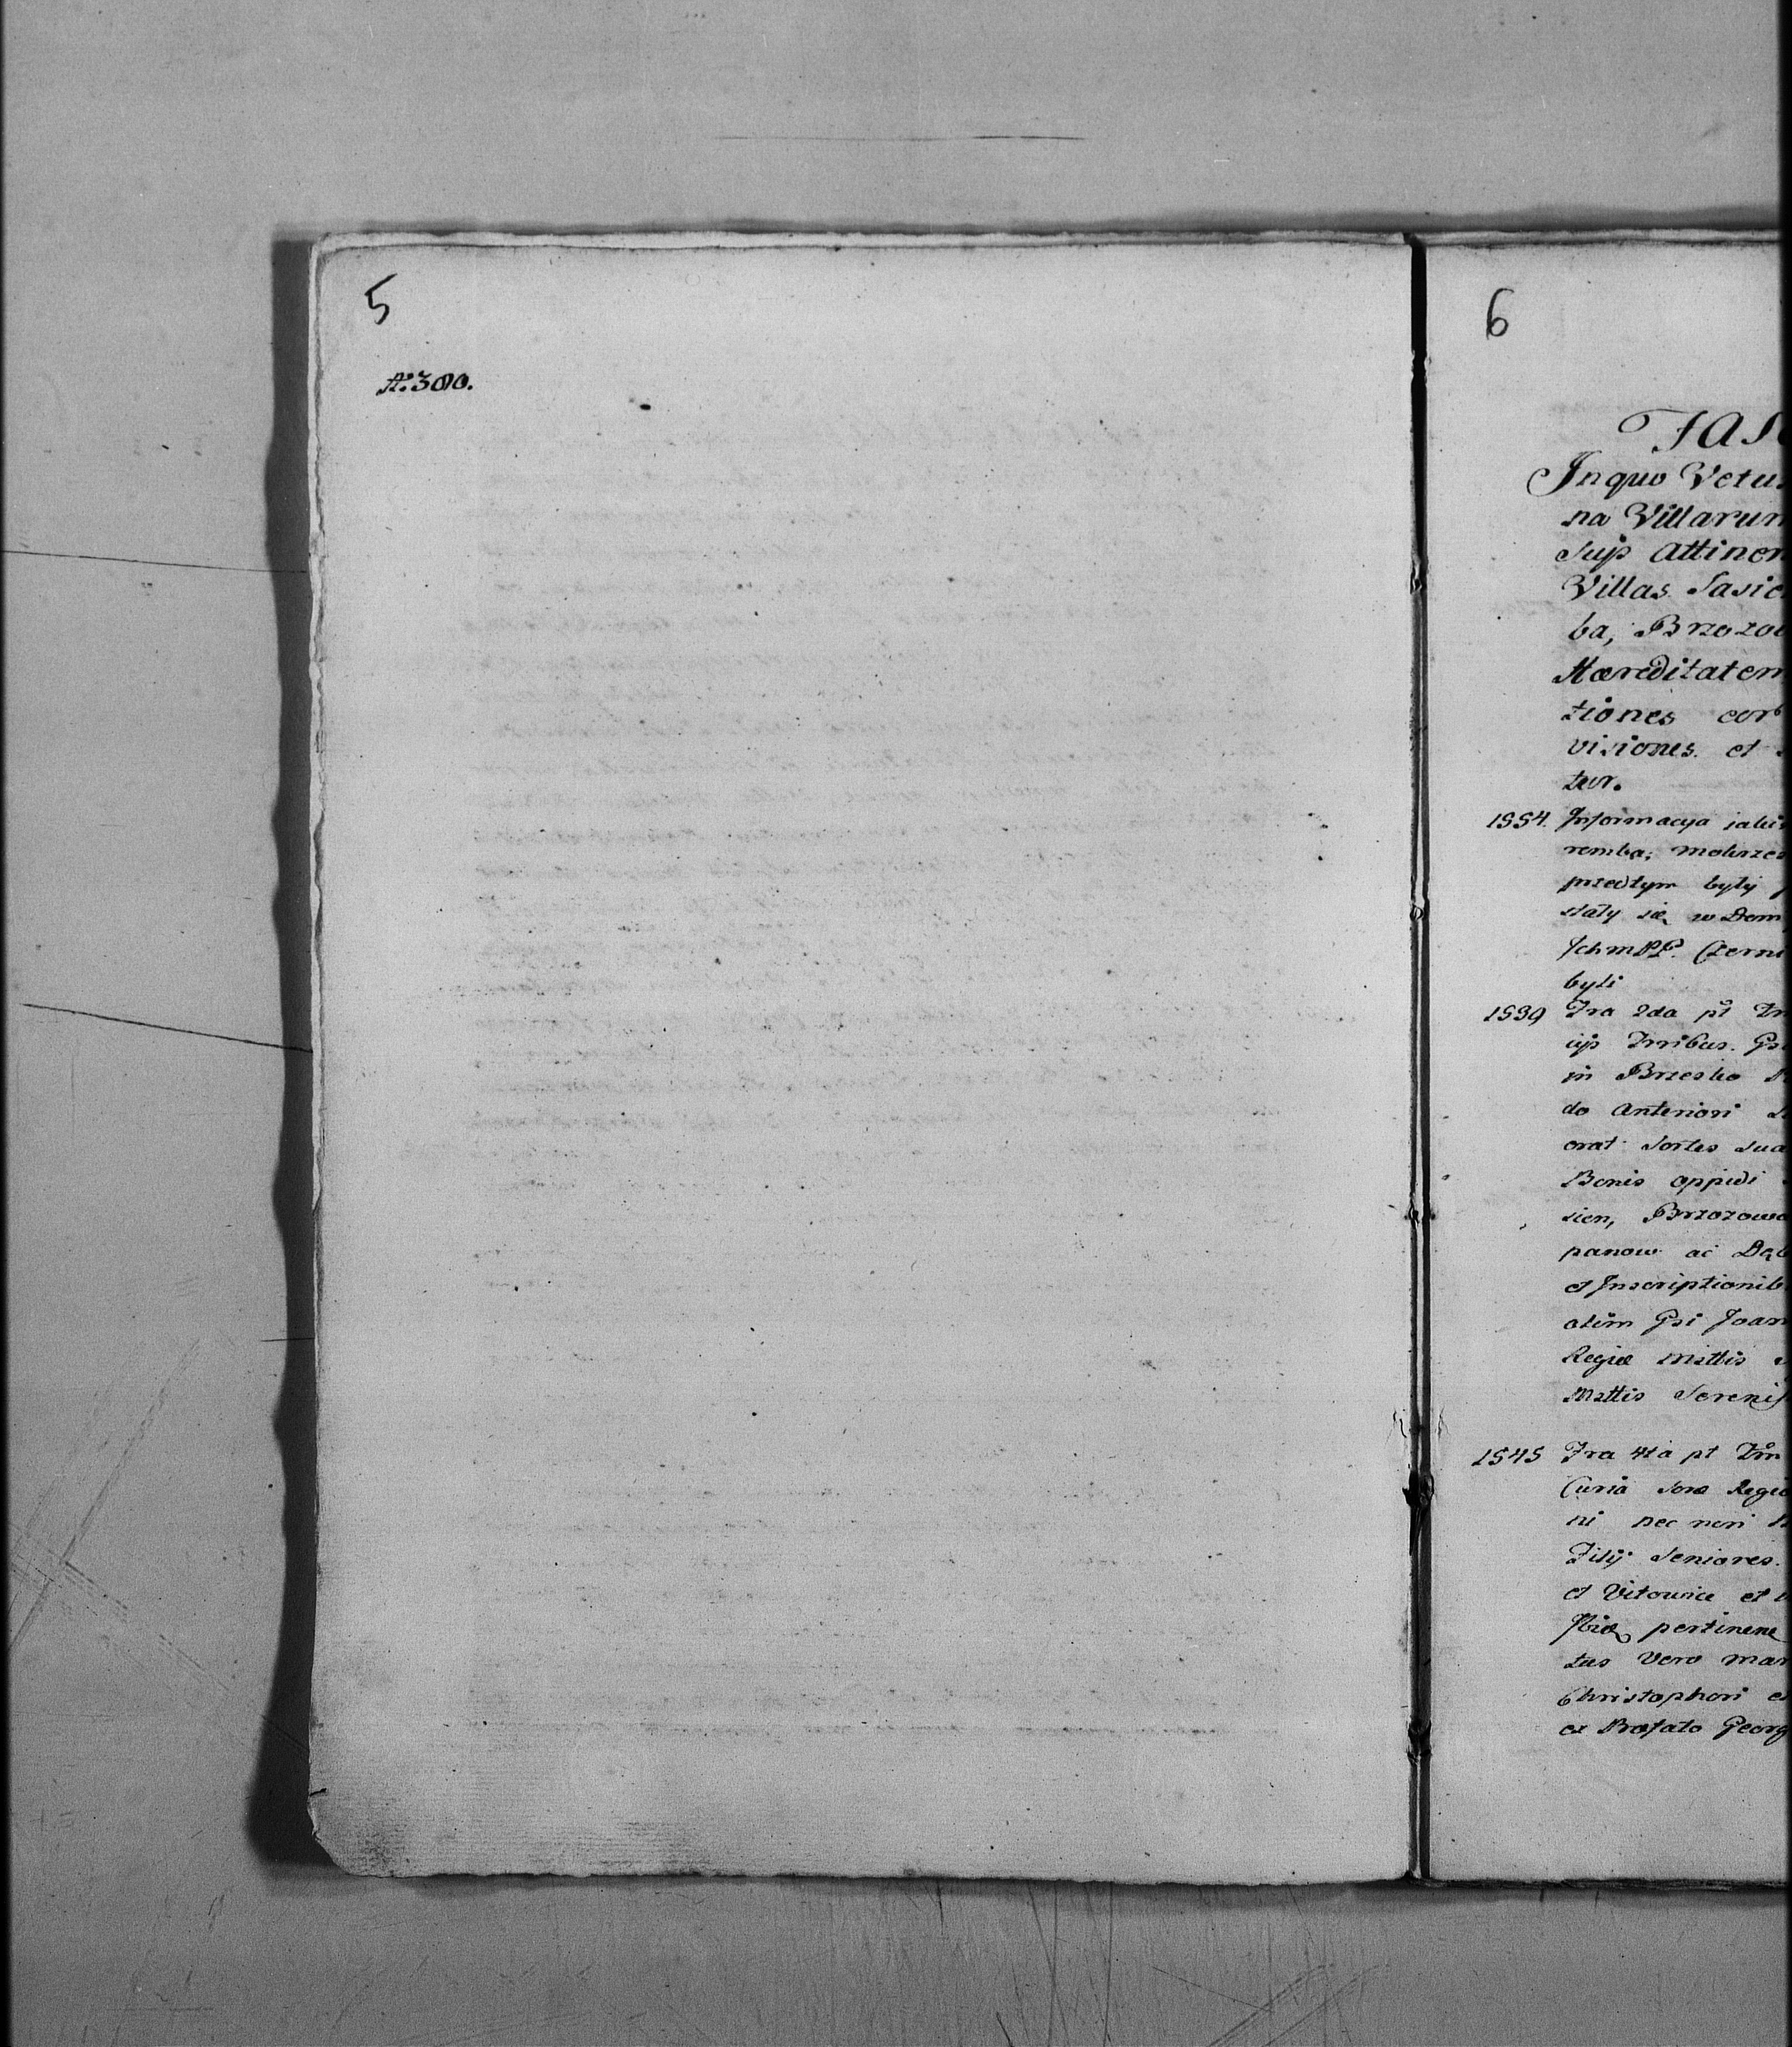 5
A. 300.
6
FASC
Inquo Vetus
na Villarum
suis Attinen
Villas Sasic
ba, Brzozow
Hæreditatem
tiones eor
visiones et
tur.
1554. Informacya jaki
remba, mokrzes
przedtym były
stały się w Dom
Czerni
byli
1539 Fra 2da
in Brzesko
do Anteriori
erat Sortes sua
Bonis oppidi
sien, Brzozowa
panow ac Dąb
et Inscriptionib
olim Gsi Joan
Regiæ Mattis
Mattis Serenis
1545 Fra 4ta pt
Curia Regia
ni nec non
Filij Seniores.
et Vitowice et
pertinene
tus Vero mar
Christophori et
ex Georg